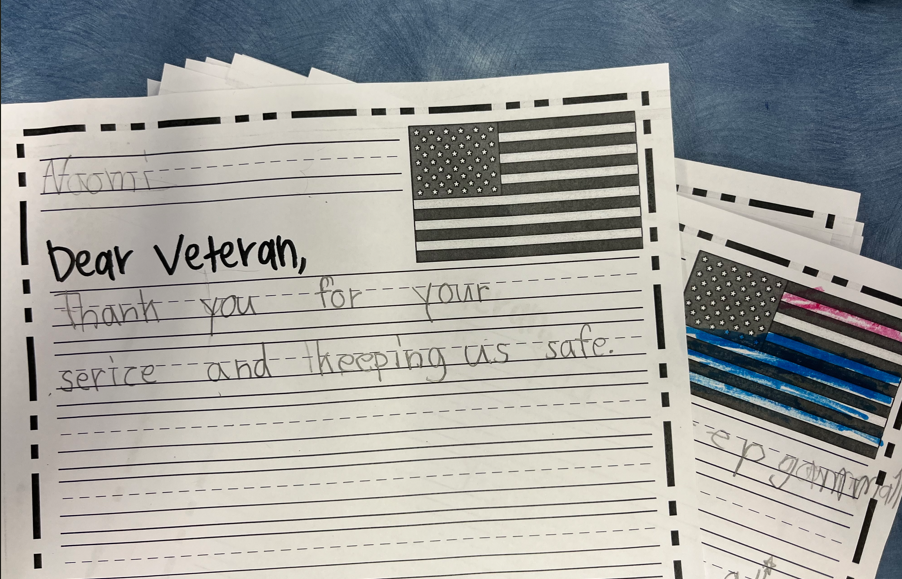 Naomi
Dear Veteran,
Thank you for your
serice and keeping us safe.
ep